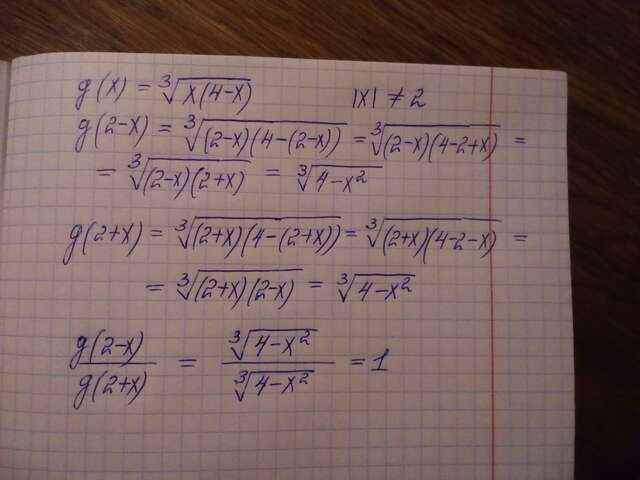 g(x) = ∛(x(4-x))    |x| ≠ 2
g(2-x) = ∛((2-x)(4-(2-x))) = ∛((2-x)(4-2+x)) =
= ∛((2-x)(2+x)) = ∛(4-x²)
g(2+x) = ∛((2+x)(4-(2+x))) = ∛((2+x)(4-2-x)) =
= ∛((2+x)(2-x)) = ∛(4-x²)
g(2-x)/g(2+x) = ∛(4-x²)/∛(4-x²) = 1